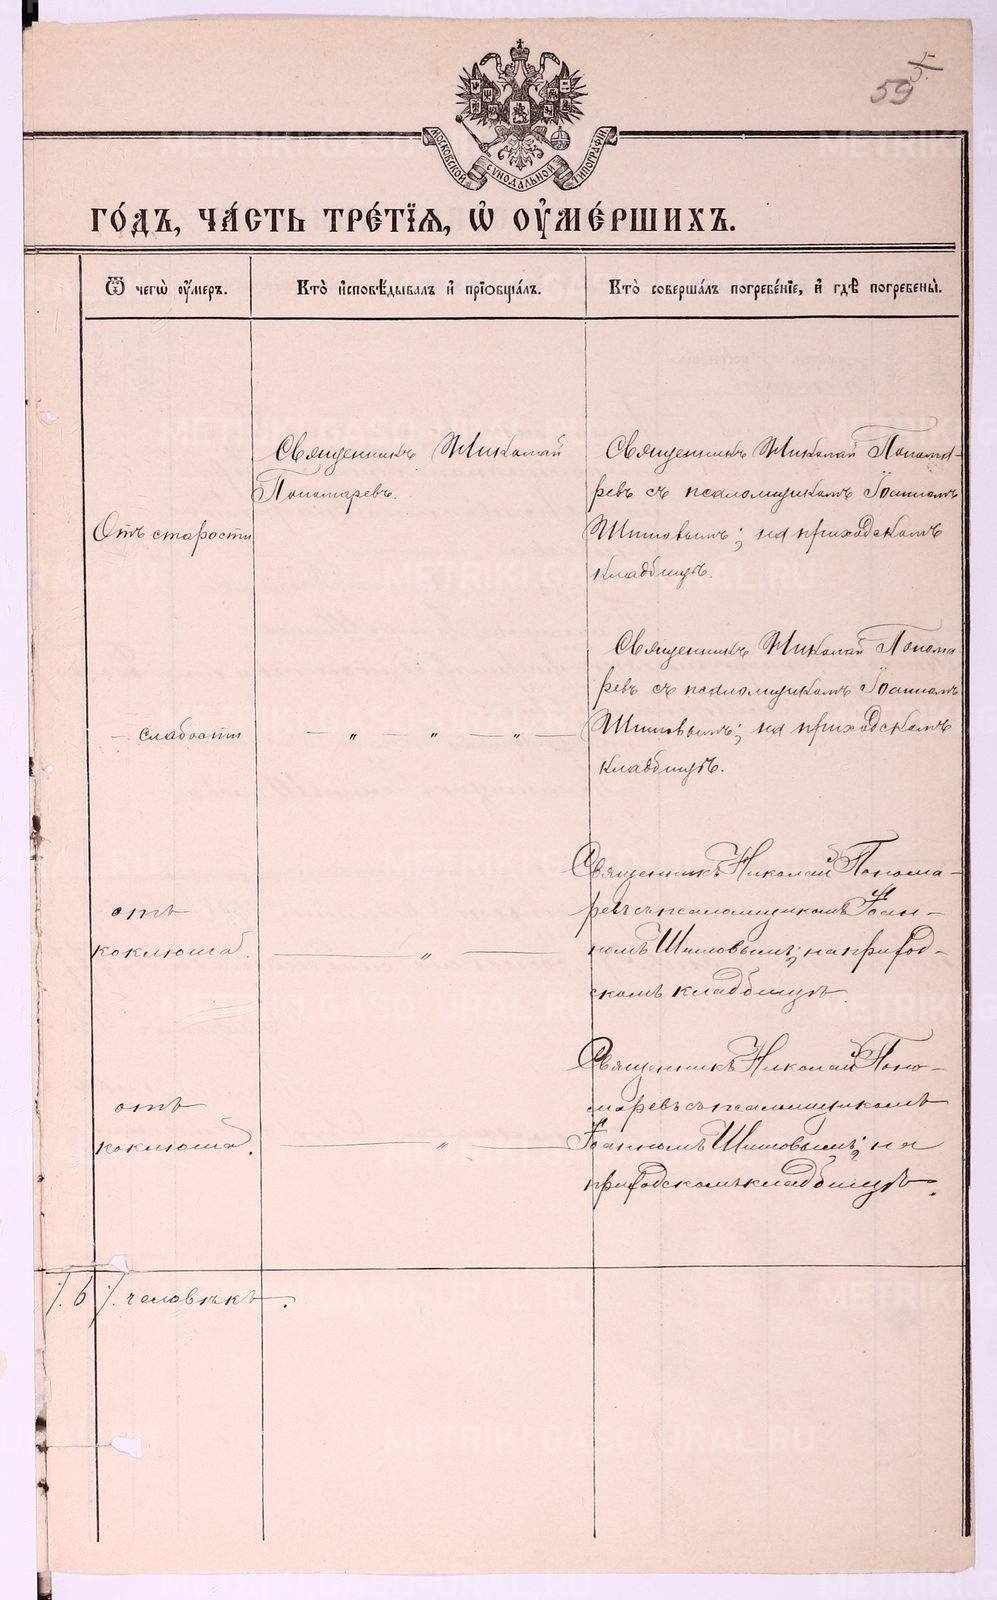 59
МОСКОВСКОЙ СѴНОДАЛЬНОЙ ТИПОГРАФІИ
го́дъ, ча́сть тре́тїѧ, ѡ҆ оу҆ме́ршихъ.
Ѿ чегѡ̀ оу҆́меръ.
Кто̀ и҆сповѣ́дывалъ и҆ прїѡбща́лъ.
Кто̀ соверша́лъ погребе́нїе, и҆ гдѣ̀ погребены̀.
Отъ старости
Священникъ Николай
Пономаревъ.
Священникъ Николай Пономаревъ
съ псаломщикомъ Іоанномъ
Шишовымъ; на приходскомъ
кладбищѣ.
— слабости
— " — " — " —
Священникъ Николай Понома
ревъ съ псаломщикомъ Іоанномъ
Шишовымъ; на приходскомъ
кладбищѣ.
отъ
коклюша.
— " —
Священникъ Николай Понома-
ревъ съ псаломщикомъ Іоан-
номъ Шишовымъ; на приход-
скомъ кладбищѣ
отъ
коклюша.
— " —
Священникъ Николай Поно-
маревъ съ псаломщикомъ
Іоанномъ Шишовымъ; на
приходскомъ кладбищѣ.
/. 6 /. человѣкъ.
METRIKI.GASO-URAL.RU